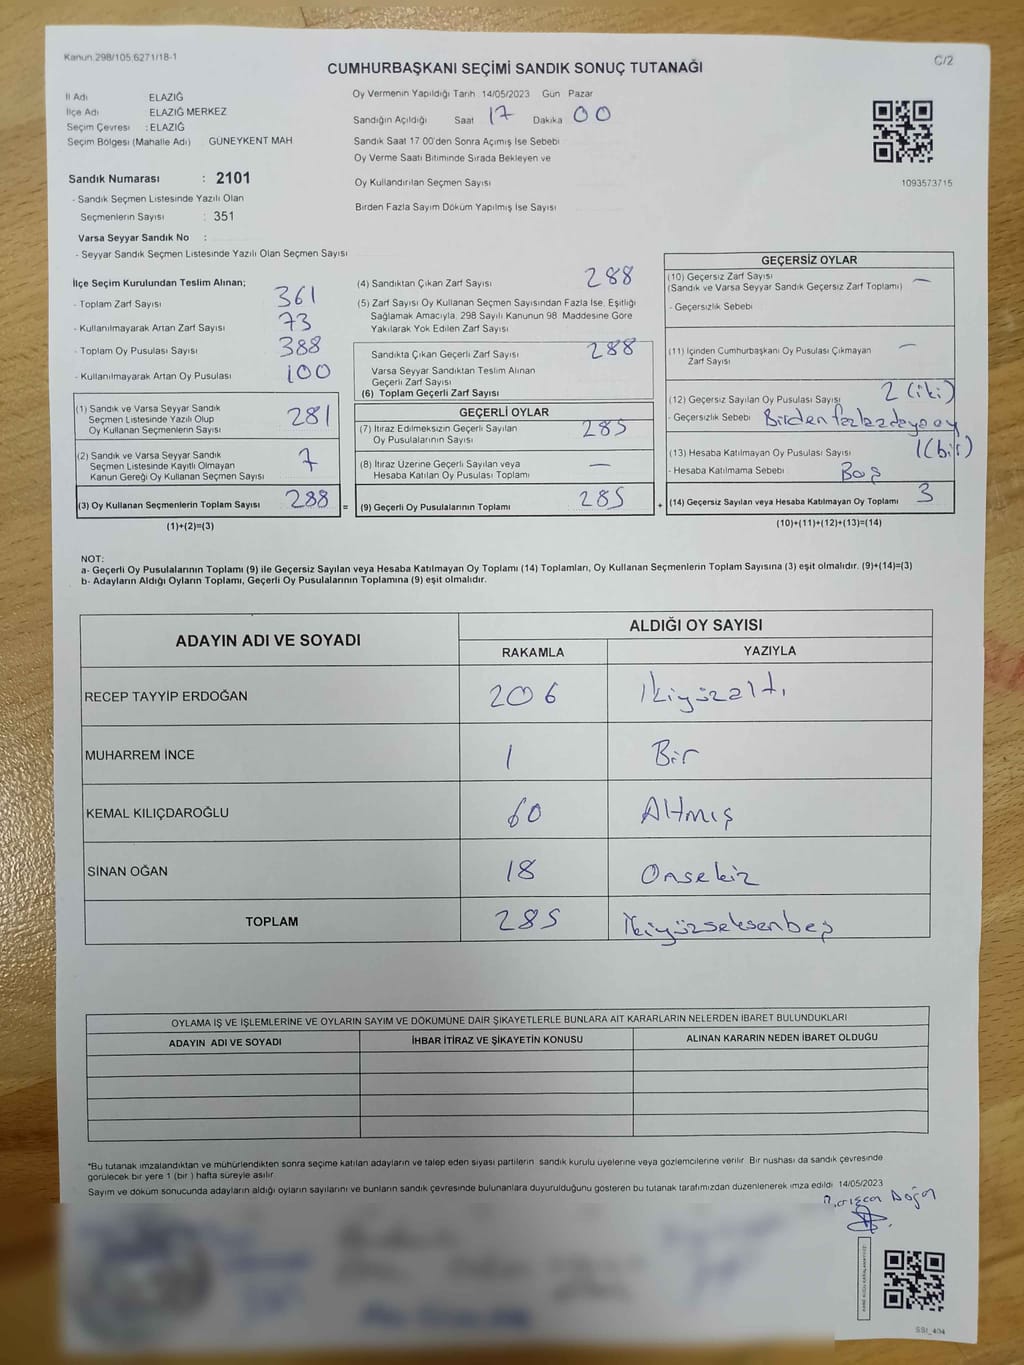 Kanun 298/105,6271/18-1
C/2
CUMHURBAŞKANI SEÇİMİ SANDIK SONUÇ TUTANAĞI
İl Adı ELAZIĞ
İlçe Adı ELAZIĞ MERKEZ
Seçim Çevresi : ELAZIĞ
Seçim Bölgesi (Mahalle Adı) GÜNEYKENT MAH
Sandık Numarası : 2101
- Sandık Seçmen Listesinde Yazılı Olan
Seçmenlerin Sayısı : 351
Varsa Seyyar Sandık No :
- Seyyar Sandık Seçmen Listesinde Yazılı Olan Seçmen Sayısı
Oy Vermenin Yapıldığı Tarih 14/05/2023 Gün Pazar
Sandığın Açıldığı Saat 17 Dakika 00
Sandık Saat 17 00'den Sonra Açımış İse Sebebi
Oy Verme Saati Bitiminde Sırada Bekleyen ve
Oy Kullandırılan Seçmen Sayısı
Birden Fazla Sayım Döküm Yapılmış İse Sayısı
1093573715
İlçe Seçim Kurulundan Teslim Alınan;
- Toplam Zarf Sayısı 361
- Kullanılmayarak Artan Zarf Sayısı 73
- Toplam Oy Pusulası Sayısı 388
- Kullanılmayarak Artan Oy Pusulası 100
(1) Sandık ve Varsa Seyyar Sandık
Seçmen Listesinde Yazılı Olup
Oy Kullanan Seçmenlerin Sayısı 281
(2) Sandık ve Varsa Seyyar Sandık
Seçmen Listesinde Kayıtlı Olmayan
Kanun Gereği Oy Kullanan Seçmen Sayısı 7
(3) Oy Kullanan Seçmenlerin Toplam Sayısı 288 =
(1)+(2)=(3)
(4) Sandıktan Çıkan Zarf Sayısı 288
(5) Zarf Sayısı Oy Kullanan Seçmen Sayısından Fazla İse, Eşitliği
Sağlamak Amacıyla, 298 Sayılı Kanunun 98 Maddesine Göre
Yakılarak Yok Edilen Zarf Sayısı
Sandıkta Çıkan Geçerli Zarf Sayısı 288
Varsa Seyyar Sandıktan Teslim Alınan
Geçerli Zarf Sayısı
(6) Toplam Geçerli Zarf Sayısı
GEÇERLİ OYLAR
(7) İtiraz Edilmeksizin Geçerli Sayılan
Oy Pusulalarının Sayısı 285
(8) İtiraz Üzerine Geçerli Sayılan veya
Hesaba Katılan Oy Pusulası Toplamı —
(9) Geçerli Oy Pusulalarının Toplamı 285 +
GEÇERSİZ OYLAR
(10) Geçersiz Zarf Sayısı
(Sandık ve Varsa Seyyar Sandık Geçersiz Zarf Toplamı) —
- Geçersizlik Sebebi
(11) İçinden Cumhurbaşkanı Oy Pusulası Çıkmayan —
Zarf Sayısı
(12) Geçersiz Sayılan Oy Pusulası Sayısı 2 (iki)
- Geçersizlik Sebebi Birden fazla adaya oy
(13) Hesaba Katılmayan Oy Pusulası Sayısı 1 (bir)
- Hesaba Katılmama Sebebi Boş
(14) Geçersiz Sayılan veya Hesaba Katılmayan Oy Toplamı 3
(10)+(11)+(12)+(13)=(14)
NOT:
a- Geçerli Oy Pusulalarının Toplamı (9) ile Geçersiz Sayılan veya Hesaba Katılmayan Oy Toplamı (14) Toplamları, Oy Kullanan Seçmenlerin Toplam Sayısına (3) eşit olmalıdır. (9)+(14)=(3)
b- Adayların Aldığı Oyların Toplamı, Geçerli Oy Pusulalarının Toplamına (9) eşit olmalıdır.
ADAYIN ADI VE SOYADI
ALDIĞI OY SAYISI
RAKAMLA YAZIYLA
RECEP TAYYİP ERDOĞAN 206 İkiyüzaltı
MUHARREM İNCE 1 Bir
KEMAL KILIÇDAROĞLU 60 Altmış
SİNAN OĞAN 18 Onsekiz
TOPLAM 285 İkiyüzseksenbeş
OYLAMA İŞ VE İŞLEMLERİNE VE OYLARIN SAYIM VE DÖKÜMÜNE DAİR ŞİKAYETLERLE BUNLARA AİT KARARLARIN NELERDEN İBARET BULUNDUKLARI
ADAYIN ADI VE SOYADI İHBAR İTİRAZ VE ŞİKAYETİN KONUSU ALINAN KARARIN NEDEN İBARET OLDUĞU
*Bu tutanak imzalandıktan ve mühürlendikten sonra seçime katılan adayların ve talep eden siyasi partilerin sandık kurulu üyelerine veya gözlemcilerine verilir. Bir nüshası da sandık çevresinde
görülecek bir yere 1 (bir) hafta süreyle asılır.
Sayım ve döküm sonucunda adayların aldığı oyların sayılarını ve bunların sandık çevresinde bulunanlara duyurulduğunu gösteren bu tutanak tarafımızdan düzenlenerek imza edildi 14/05/2023
Doğan
SSI_404